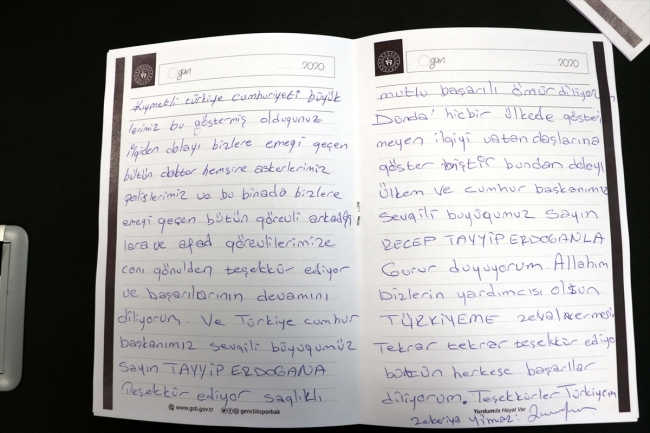 gün 2020
Kıymetli türkiye cumhuriyeti büyük
lerimiz bu göstermiş olduğunuz
ilgiden dolayı bizlere emeği geçen
bütün doktor hemşire askerlerimiz
polislerimiz ve bu binada bizlere
emeği geçen bütün görevli arkadaş
lara ve afad görevlilerimize
canı gönülden teşekkür ediyor
ve başarılarının devamını
diliyorum. Ve Türkiye cumhur
başkanımız sevgili büyüğümüz
Sayın TAYYİP ERDOGANA
Teşekkür ediyor sağlıklı
www.gsb.gov.tr gencliksporbak
gün 2020
mutlu başarılı ömür diliyorum
Dünda' hiçbir ülkede gösteri
meyen ilgiyi vatandaşlarına
göster miştir bundan dolayı
Ülkem ve cumhur başkanımız
Sevgili büyüğümuz Sayın
RECEP TAYYİP ERDOGANLA
Gurur duyuyorum. Allahım
bizlerin yardımcısı olsun
TÜRKİYEME zeval vermesin
Tekrar tekrar teşekkür ediyo
bütün herkese başarılar
diliyorum. Teşekkürler Türkiyem
Yurdumda Hayat Var
zekeriya Yılmaz